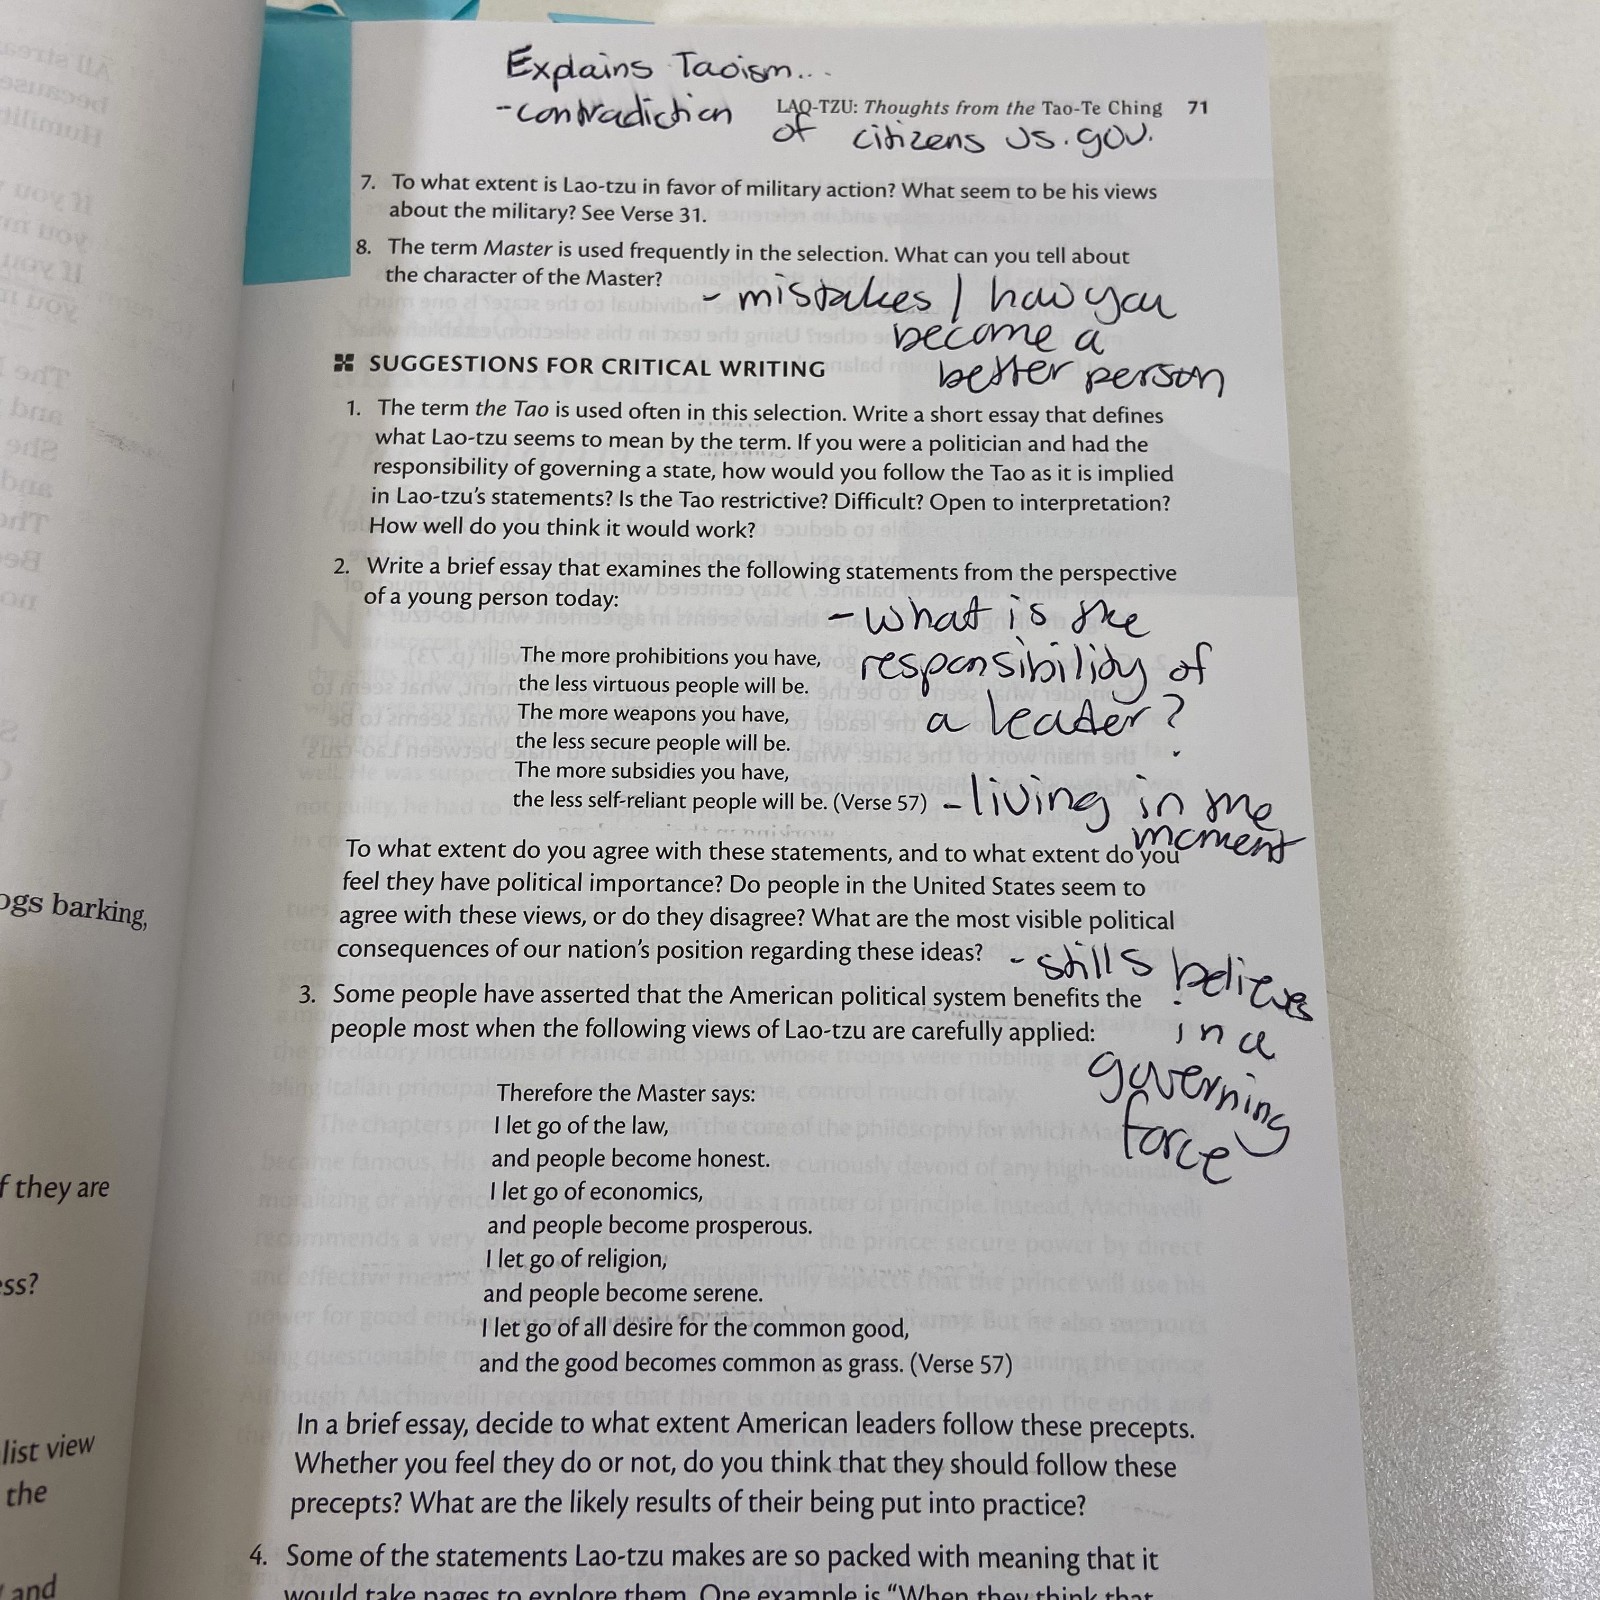 Explains Taoism...
- contradiction of citizens US. gov.
LAO-TZU: Thoughts from the Tao-Te Ching 71
7. To what extent is Lao-tzu in favor of military action? What seem to be his views
about the military? See Verse 31.
8. The term Master is used frequently in the selection. What can you tell about
the character of the Master?
- mistakes / how you
become a
better person
SUGGESTIONS FOR CRITICAL WRITING
1. The term the Tao is used often in this selection. Write a short essay that defines
what Lao-tzu seems to mean by the term. If you were a politician and had the
responsibility of governing a state, how would you follow the Tao as it is implied
in Lao-tzu's statements? Is the Tao restrictive? Difficult? Open to interpretation?
How well do you think it would work?
2. Write a brief essay that examines the following statements from the perspective
of a young person today:
- what is the
responsibility of
a leader?
The more prohibitions you have,
the less virtuous people will be.
The more weapons you have,
the less secure people will be.
The more subsidies you have,
the less self-reliant people will be. (Verse 57)
- living in the
moment
To what extent do you agree with these statements, and to what extent do you
feel they have political importance? Do people in the United States seem to
agree with these views, or do they disagree? What are the most visible political
consequences of our nation's position regarding these ideas?
- stills believes
in a
governing
force
3. Some people have asserted that the American political system benefits the
people most when the following views of Lao-tzu are carefully applied:
Therefore the Master says:
I let go of the law,
and people become honest.
I let go of economics,
and people become prosperous.
I let go of religion,
and people become serene.
I let go of all desire for the common good,
and the good becomes common as grass. (Verse 57)
In a brief essay, decide to what extent American leaders follow these precepts.
Whether you feel they do or not, do you think that they should follow these
precepts? What are the likely results of their being put into practice?
4. Some of the statements Lao-tzu makes are so packed with meaning that it
would take pages to explore them. One example is "When they think that
ogs barking,
f they are
ess?
list view
the
and